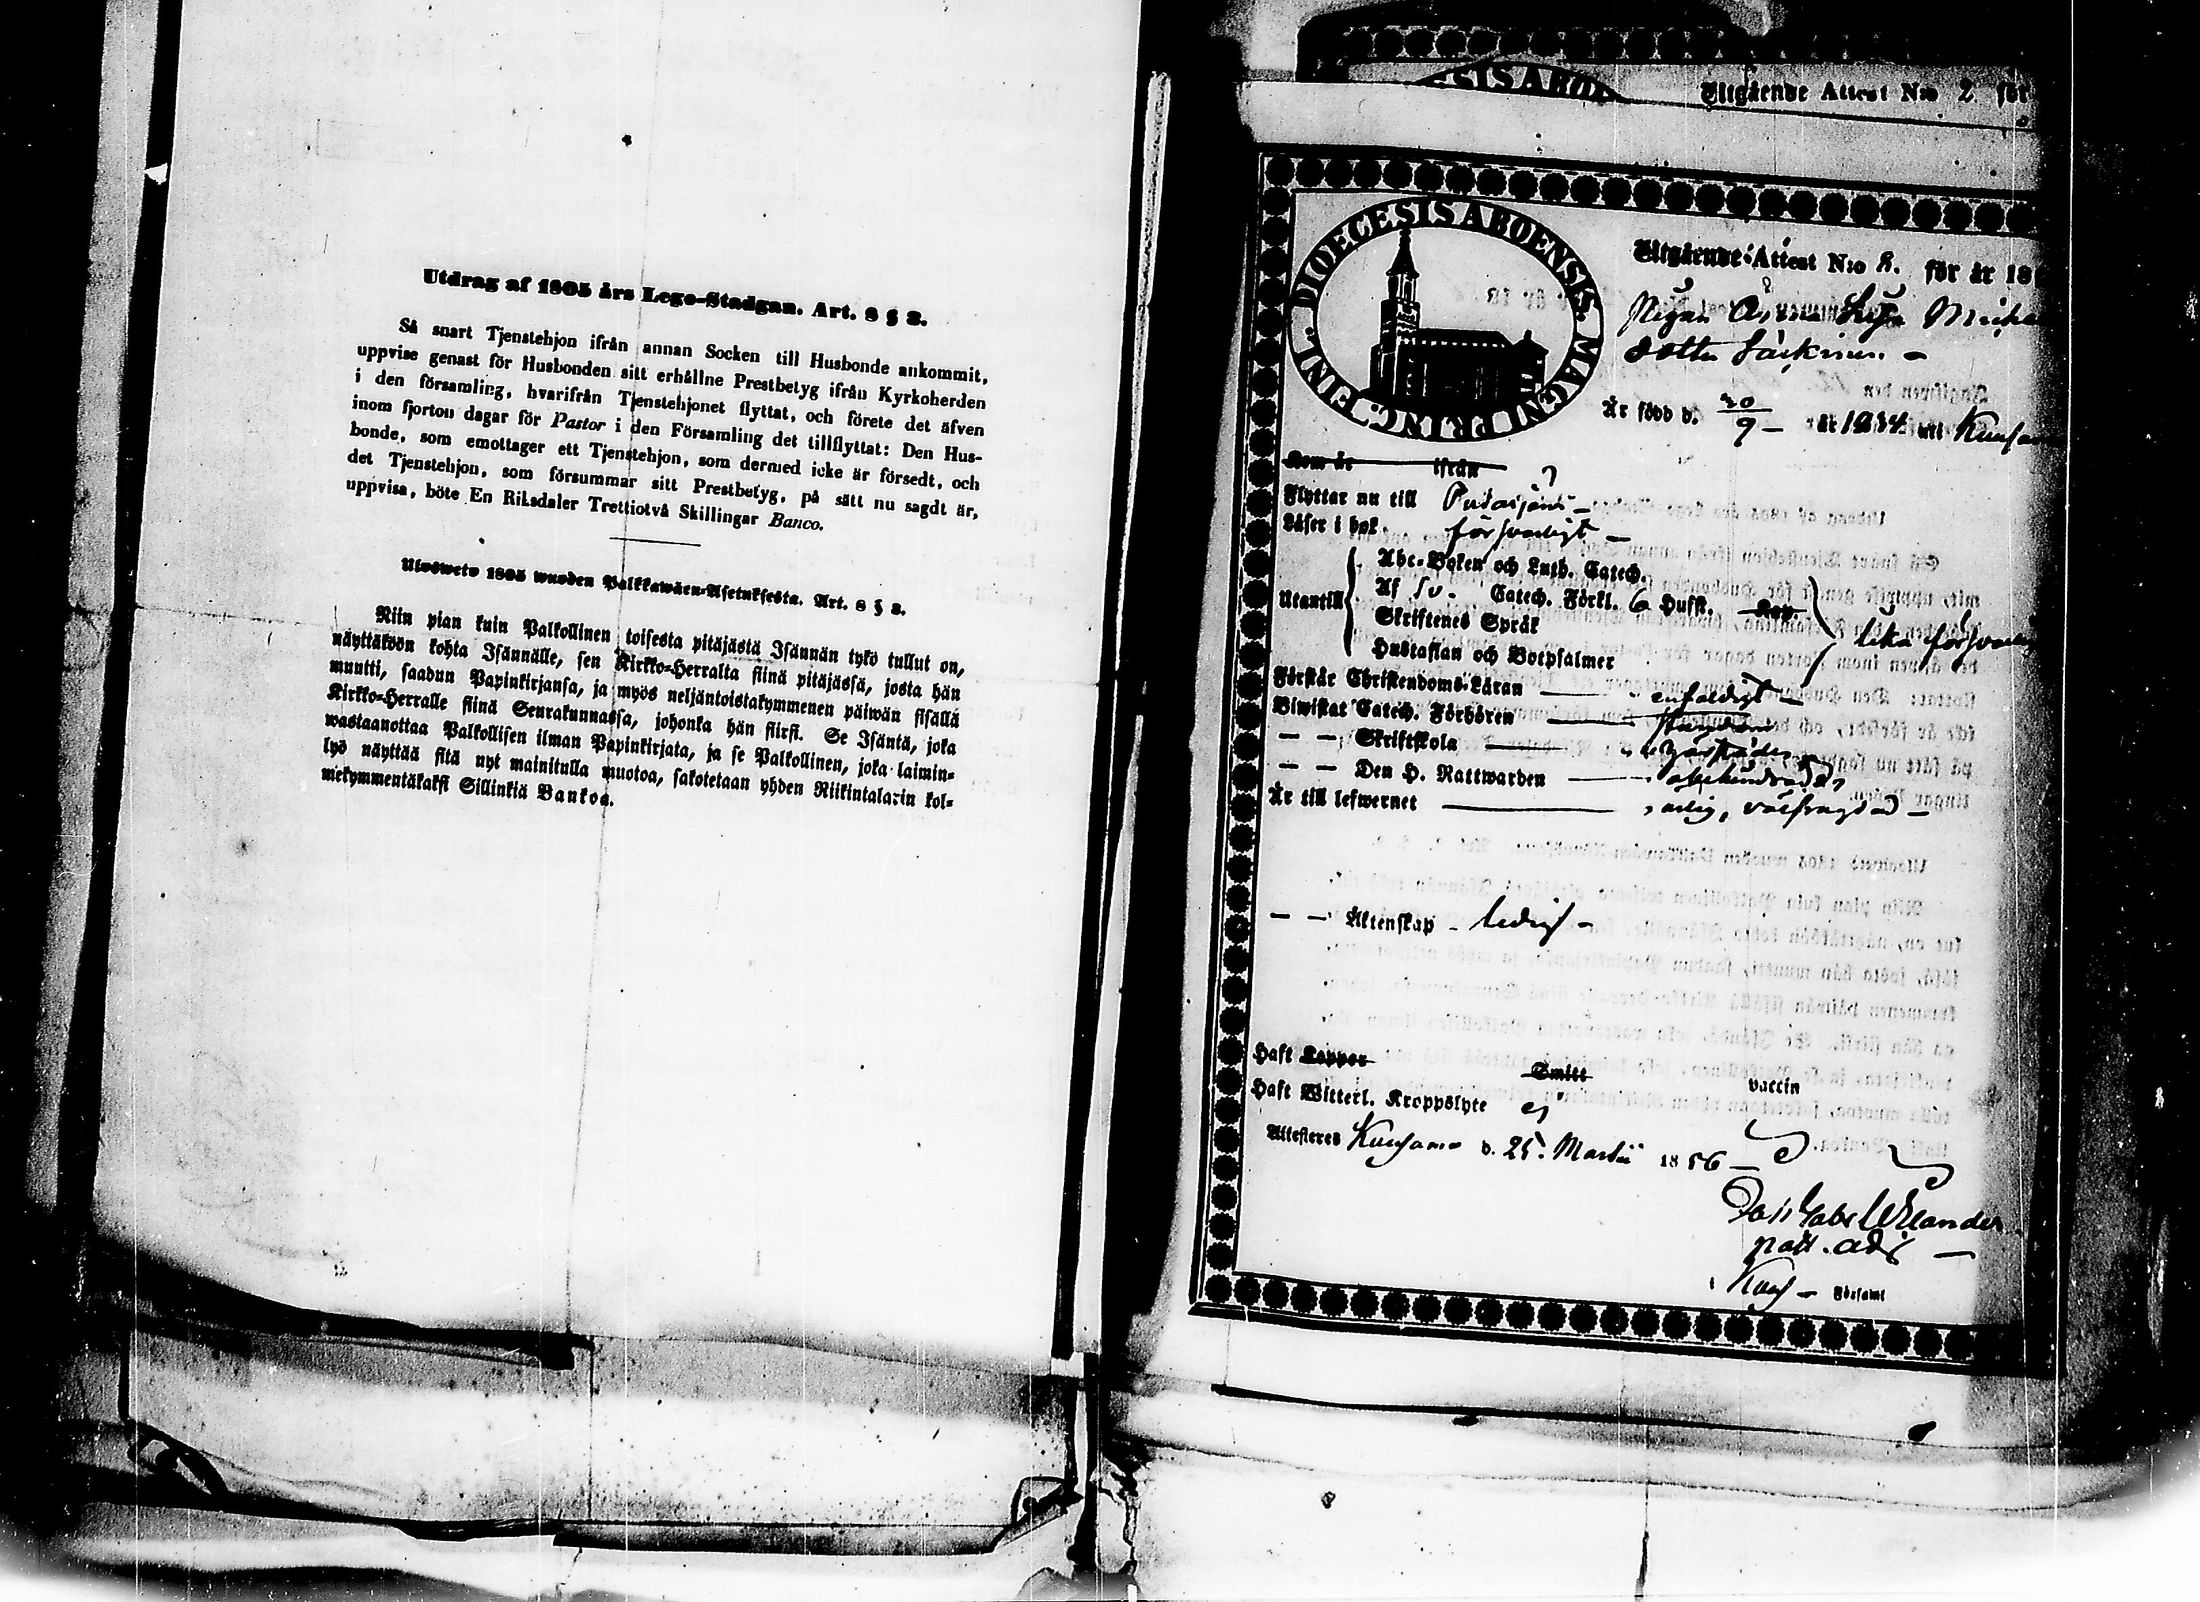 Utdrag af 1805 års Lego-Stadgan. Art. 8 § 3.
Så snart Tjenstehjon ifrån annan Socken till Husbonde ankommit,
uppvise genast för Husbonden sitt erhållne Prestbetyg ifrån Kyrkoherden
i den församling, hvarifrån Tjenstehjonet flyttat, och förete det äfven
inom fjorton dagar för Pastor i den Församling det tillflyttat: Den Hus-
bonde, som emottager ett Tjenstehjon, som dermed icke är försedt, och
det Tjenstehjon, som försummar sitt Prestbetyg, på sätt nu sagdt är,
uppvisa, böte En Riksdaler Trettiotvå Skillingar Banco.
Ulosweto 1805 wuoden Palkkawäen-Asetuksesta. Art. 8 § 3.
Niin pian kuin Palkollinen toisesta pitäjästä Isännän tykö tullut on,
näyttäköön kohta Isännälle, sen Kirkko-Herralta siinä pitäjässä, josta hän
muutti, saadun Papinkirjansa, ja myös neljäntoistakymmenen päiwän sisällä
Kirkko-Herralle siinä Seurakunnassa, johonka hän siirsi. Se Isäntä, joka
wastaanottaa Palkollisen ilman Papinkirjata, ja se Palkollinen, joka laimin-
lyö näyttää sitä nyt mainitulla muotoa, sakotetaan yhden Riikintalarin kol-
mekymmentäkaksi Sillinkiä Bankoa.
ESIS ABOE
Utgående Attest N:o 2 för
DIOECESIS ABOENSIS. MAGNI PRINC. FINL.
Utgående Attest N:o 8. för år 18
Pigan Anna Lisa Micha
dotter
Är född d. 20/9 år 1834 uti Kuusam
Kom år ifrån
Flyttar nu till Pudasjärvi
Läser i bok försvarligt
Utantill
Abc-Boken och Luth. Catech.
Af Sv. Catech. Förkl. 6 Hufst. Kap.
Skriftenes Språk
Hustaflan och Botpsalmer
lika försvarl
Förstår Christendoms-Läran enfaldigt
Biwistat Catech. Förhören
— — Skriftskola
— — Den H. Nattwarden
Är till lefwernet ärlig, välfrägdad
— — Äktenskap ledig
Haft Koppor Smitt vaccin
Haft Witterl. Kroppslyte ej
Attesteras Kuusamo d. 25. Martii 1856
Past. adj.
Kuus Församl